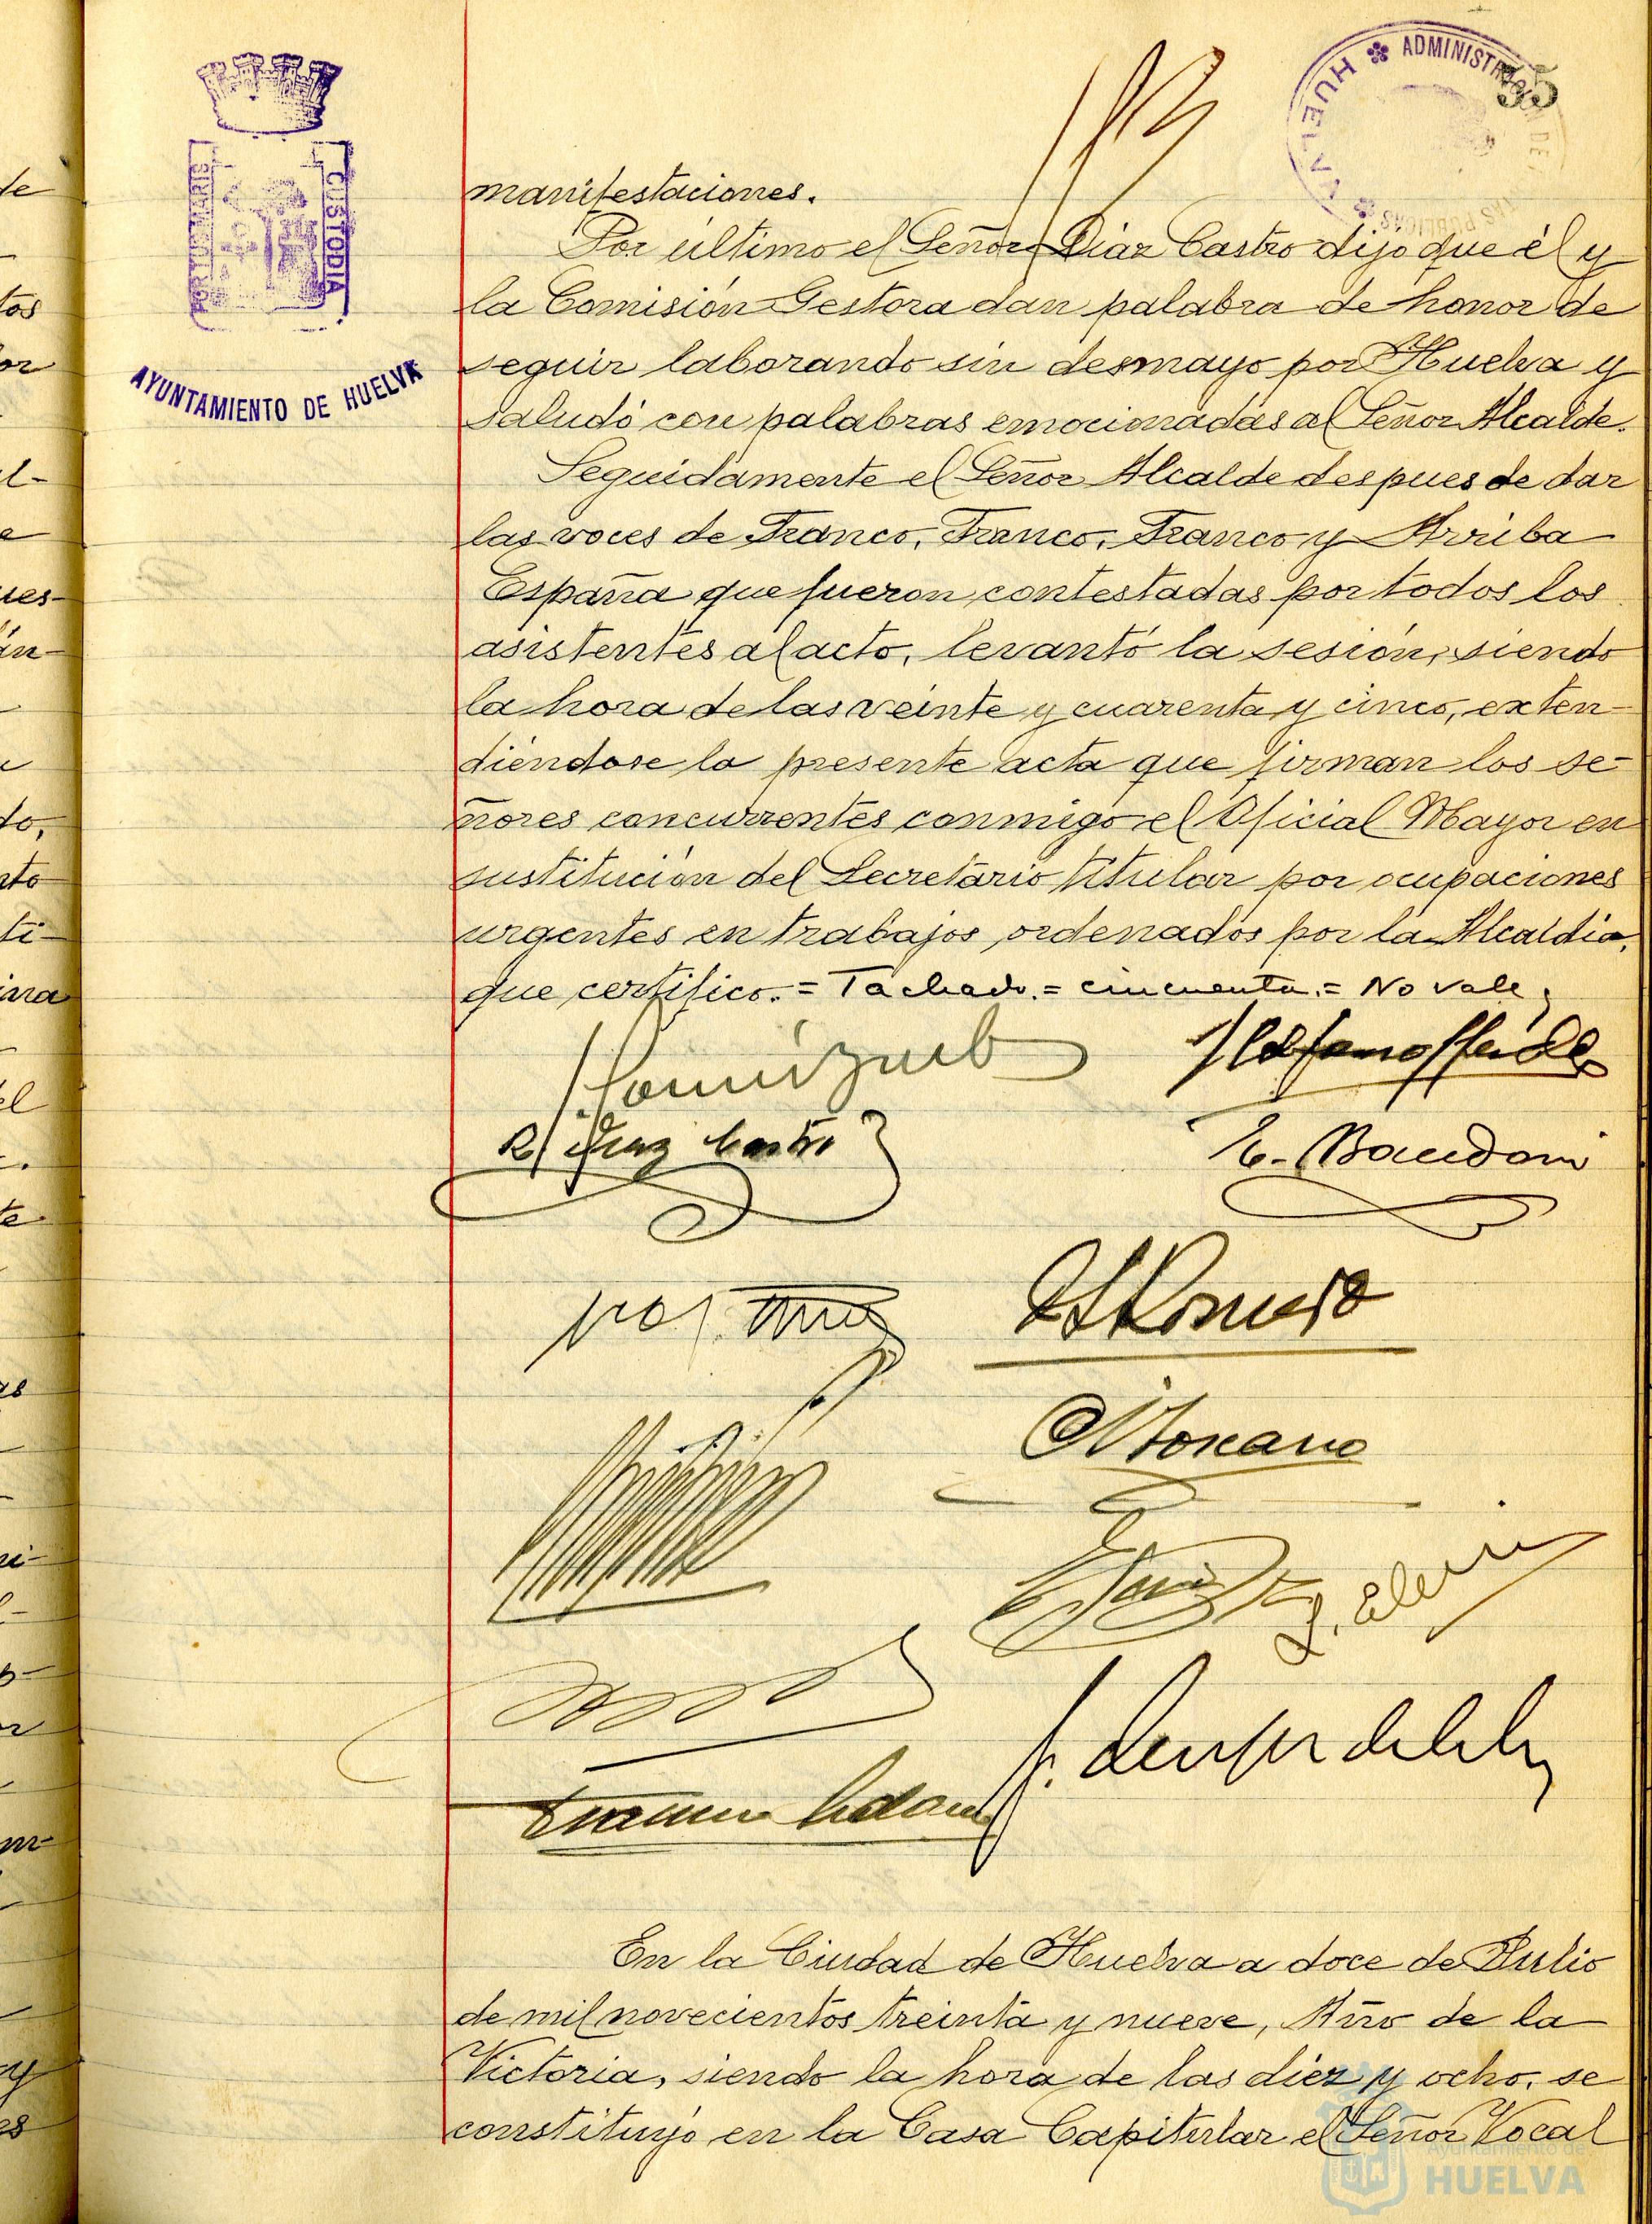 55
ADMINISTRACION DE
HUELVA
PORTUS MARIS
CUSTODIA
AYUNTAMIENTO DE HUELVA
manifestaciones.
Por último el Señor Díaz Castro dijo que él y
la Comisión Gestora dan palabra de honor de
seguir laborando sin desmayo por Huelva y
saludó con palabras emocionadas al Señor Alcalde.
Seguidamente el Señor Alcalde despues de dar
las voces de Franco, Franco, Franco y Arriba
España que fueron contestadas por todos los
asistentes al acto, levantó la sesión, siendo
la hora de las veinte y cuarenta y cinco, exten-
diéndose la presente acta que firman los se-
ñores concurrentes conmigo el Oficial Mayor en
sustitución del Secretario titular por ocupaciones
urgentes en trabajos ordenados por la Alcaldía,
que certifico.= Tachado.= cincuenta.= No vale.
R. Diaz Castro
E. Baudoni
Romero
En la Ciudad de Huelva a doce de Julio
de mil novecientos treinta y nueve, Año de la
Victoria, siendo la hora de las diez y ocho, se
constituyó en la Casa Capitular el Señor Vocal
Ayuntamiento de
HUELVA